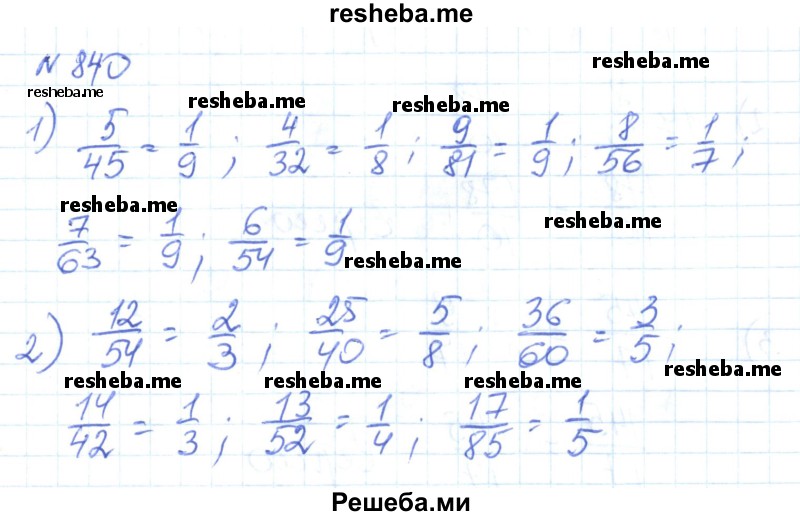 resheba.me
№ 840
resheba.me
resheba.me
resheba.me resheba.me
1) 5/45 = 1/9; 4/32 = 1/8; 9/81 = 1/9; 8/56 = 1/7;
resheba.me
resheba.me
7/63 = 1/9; 6/54 = 1/9
resheba.me
2) 12/54 = 2/3; 25/40 = 5/8; 36/60 = 3/5;
resheba.me
resheba.me resheba.me resheba.me
14/42 = 1/3; 13/52 = 1/4; 17/85 = 1/5
Решеба.ми